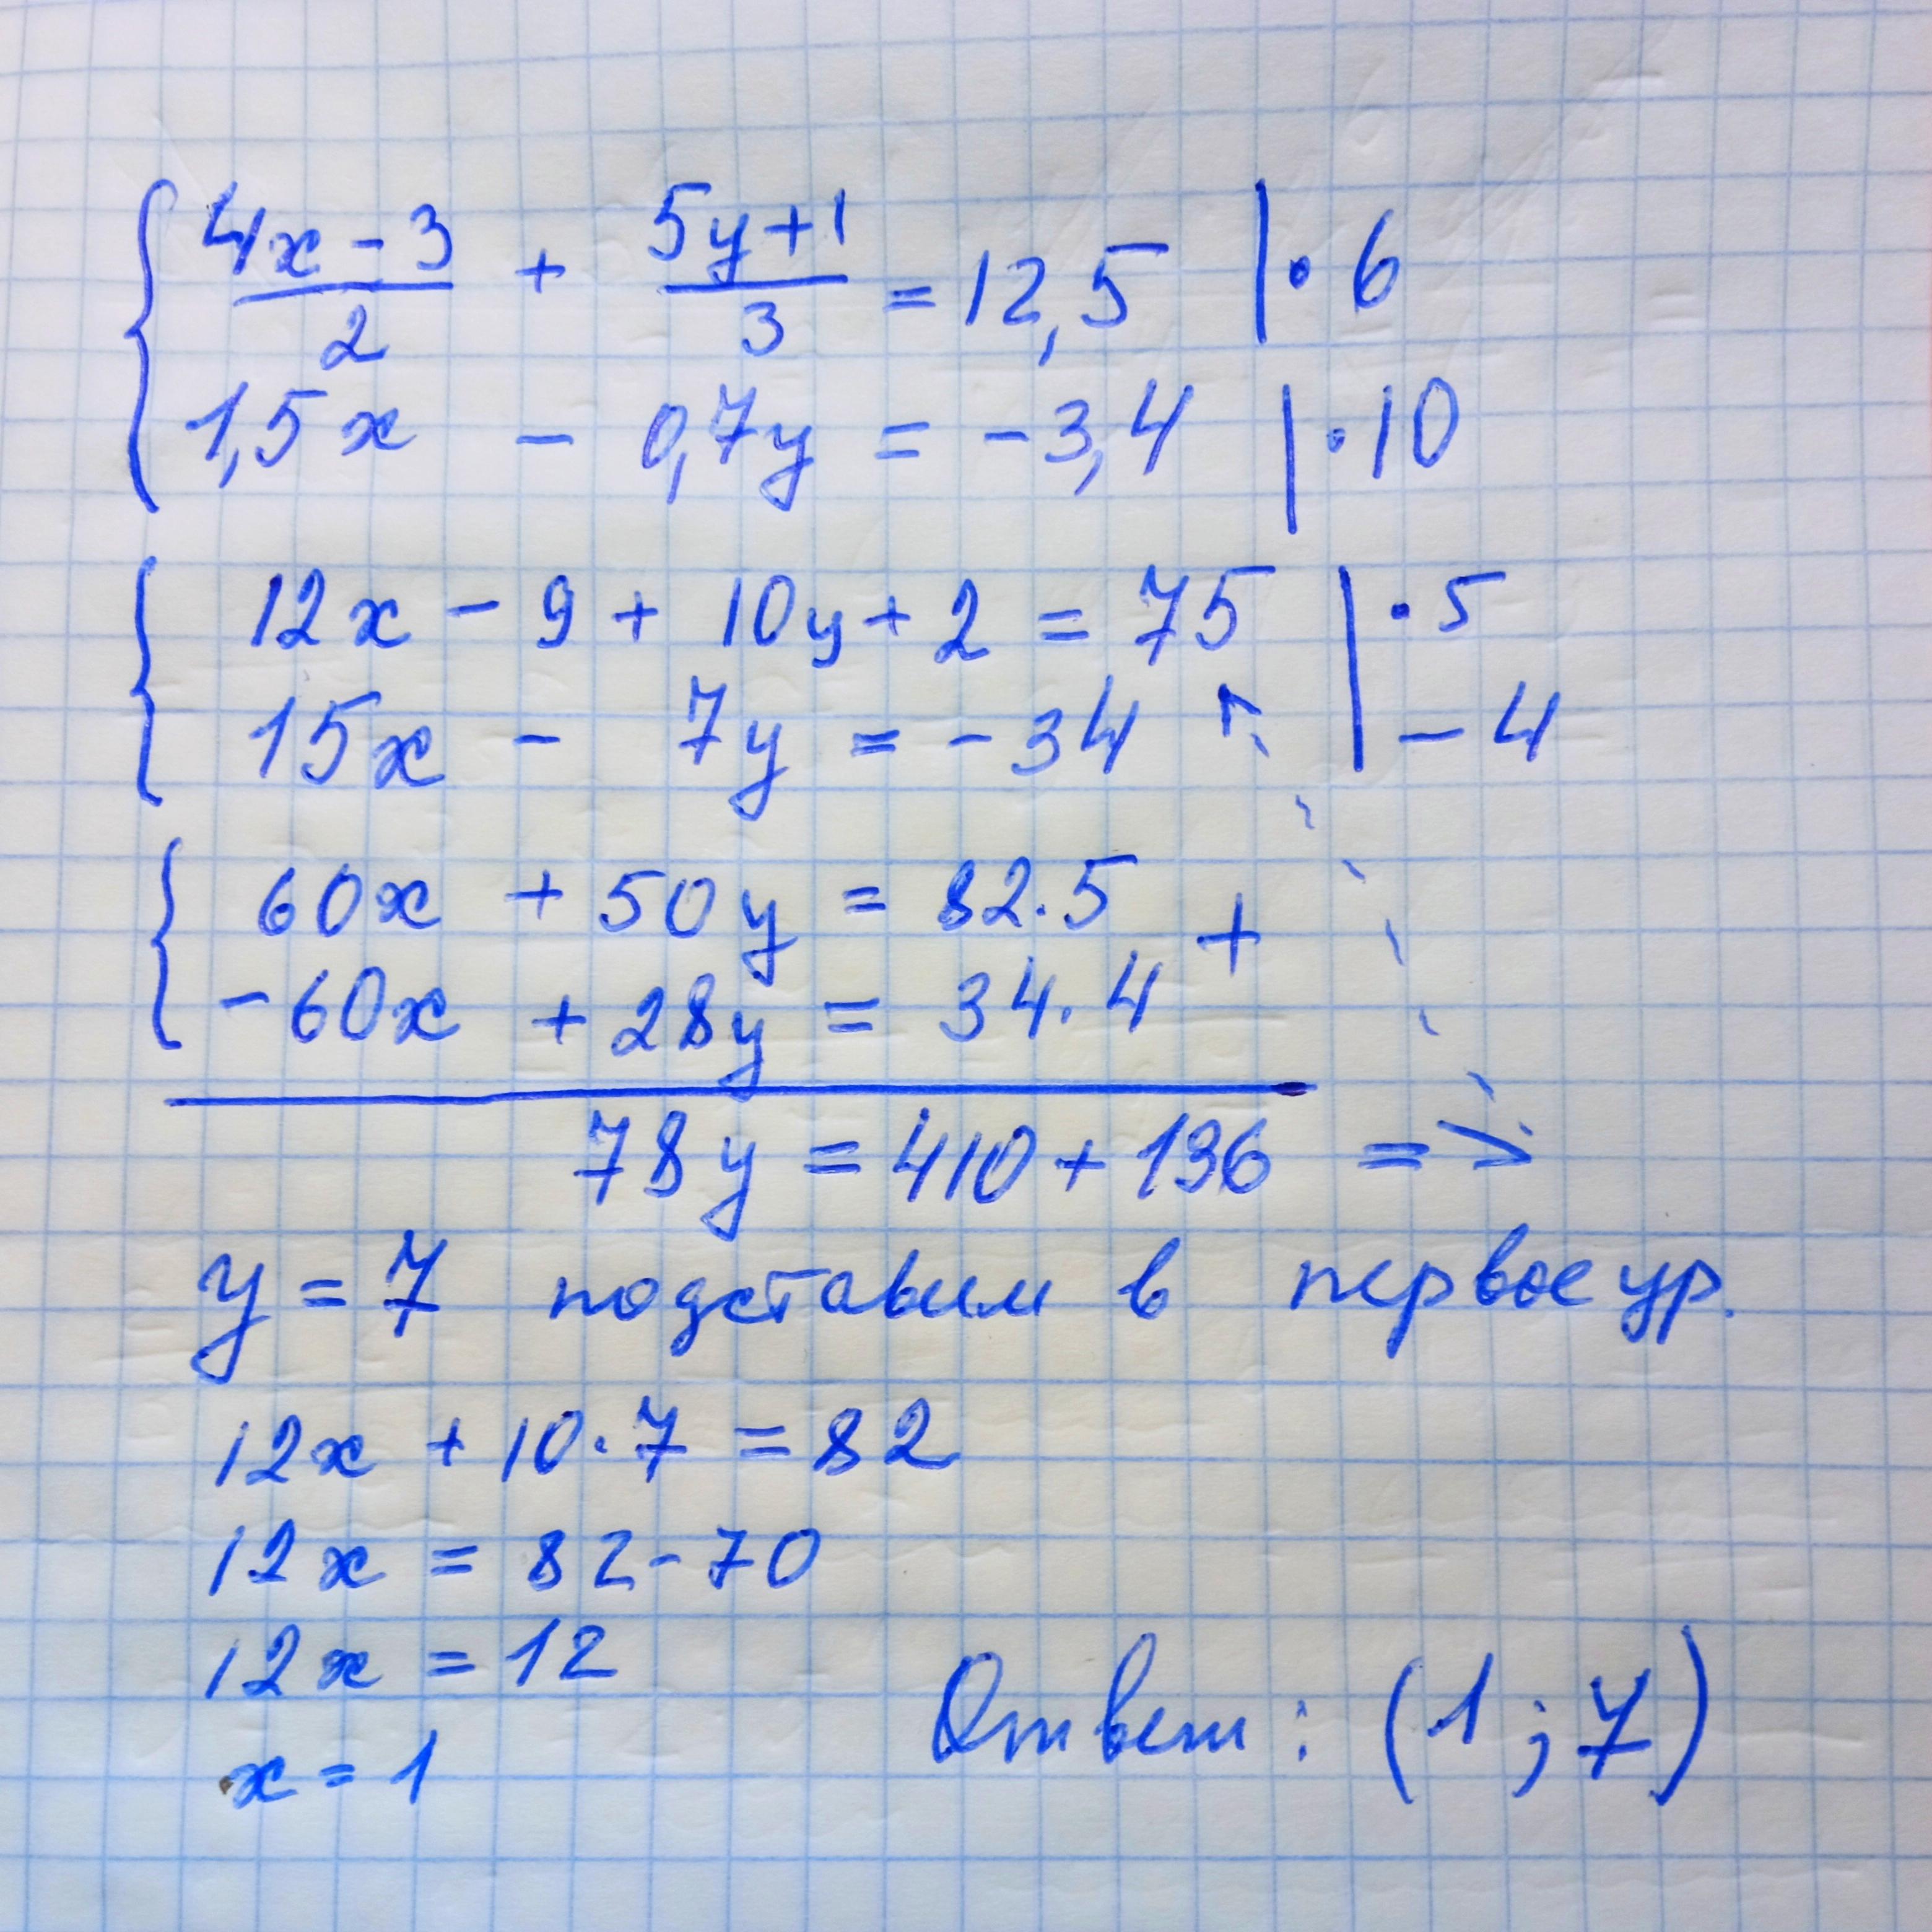 4x - 3 / 2 + 5y + 1 / 3 = 12,5 | · 6
1,5x - 0,7y = -3,4 | · 10
12x - 9 + 10y + 2 = 75 | · 5
15x - 7y = -34 | - 4
60x + 50y = 82 · 5
-60x + 28y = 34 · 4 +
78y = 410 + 136 =>
y = 7 подставим в первое ур.
12x + 10 · 7 = 82
12x = 82 - 70
12x = 12
x = 1
Ответ: (1; 7)